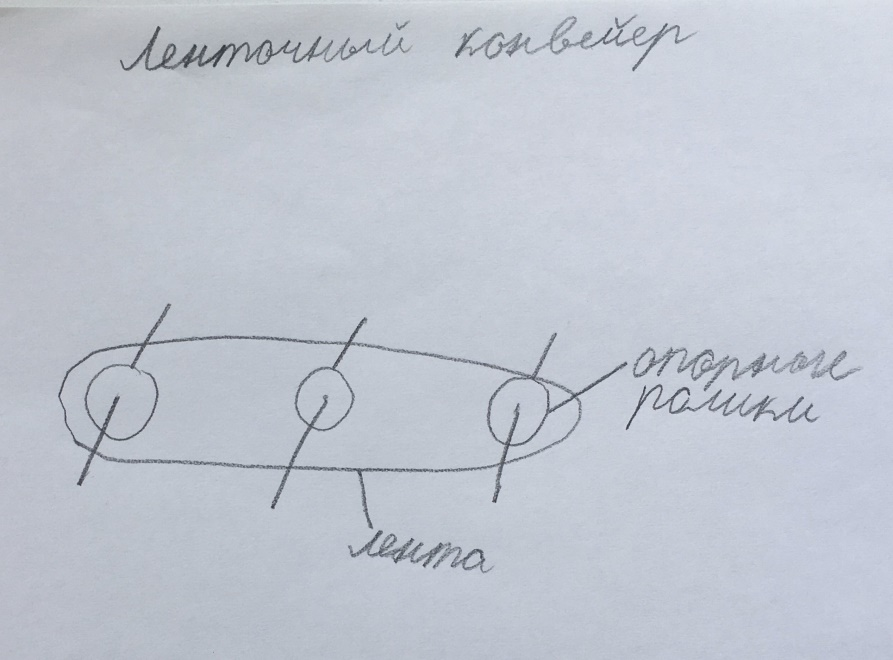 Ленточный конвейер
опорные
ролики
лента